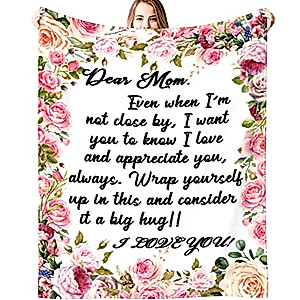 Dear Mom.
Even when I'm
not close by, I want
you to know I love
and appreciate you,
always. Wrap yourself
up in this and consider
it a big hug!!
I LOVE YOU!